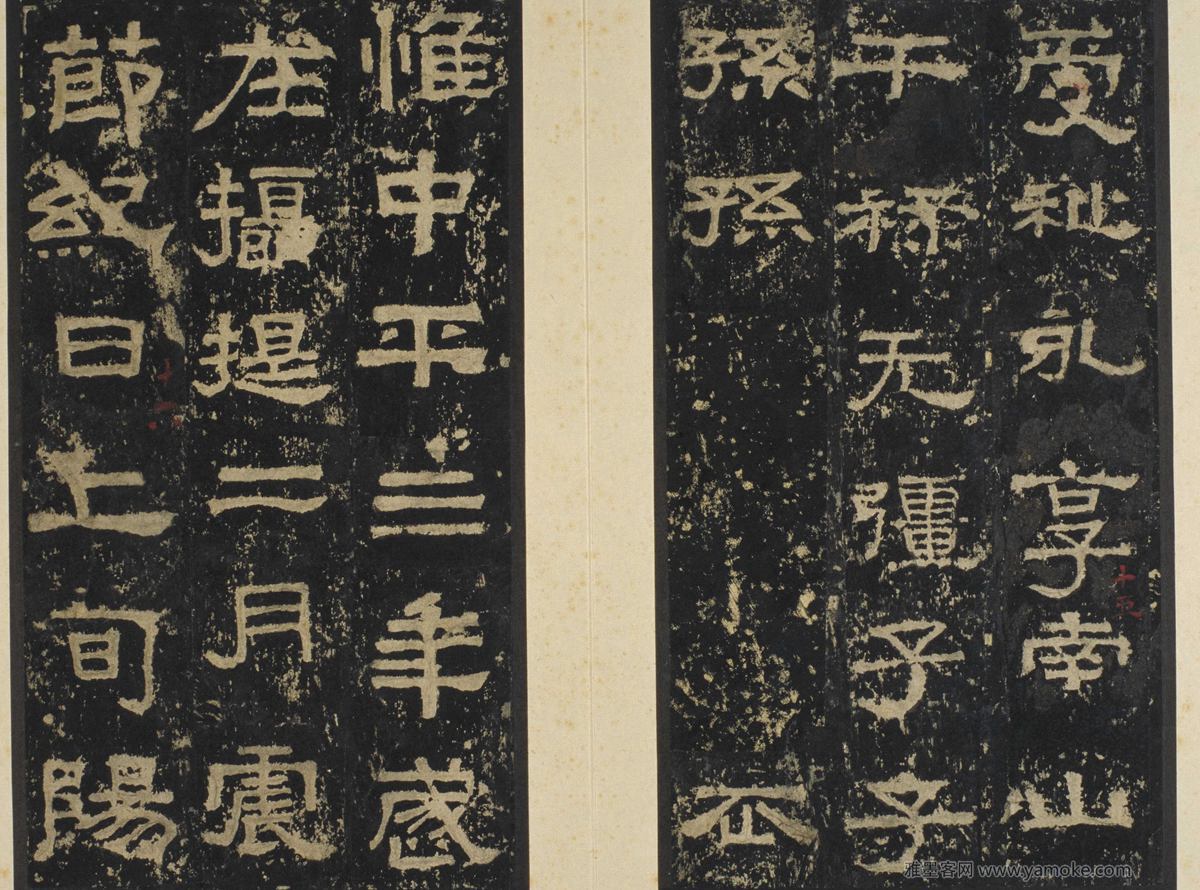 受祉永享南山
干祿无疆子子
孫孫不
惟中平三年歲
在攝提二月震
節紀日上旬陽
雅墨客网 www.yamoke.com